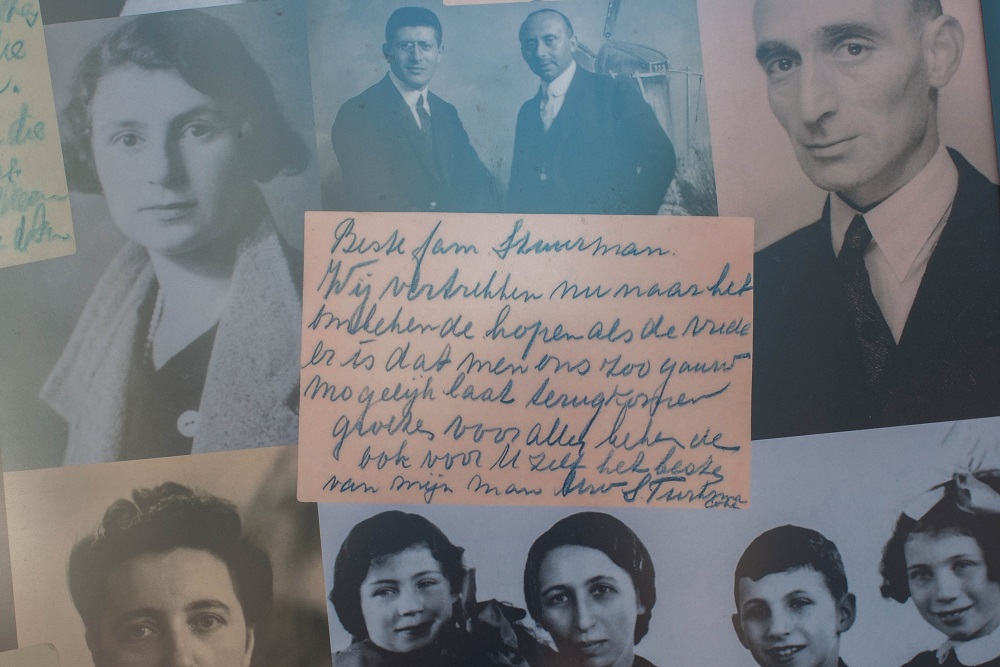 die
Beste fam Stuurman.
Wij vertrekken nu naar het
onbekende hopen als de vrede
er is dat men ons zoo gauw
mogelijk laat terugkomen
groetes voor alle bekende
ook voor U zelf het beste
van mijn man